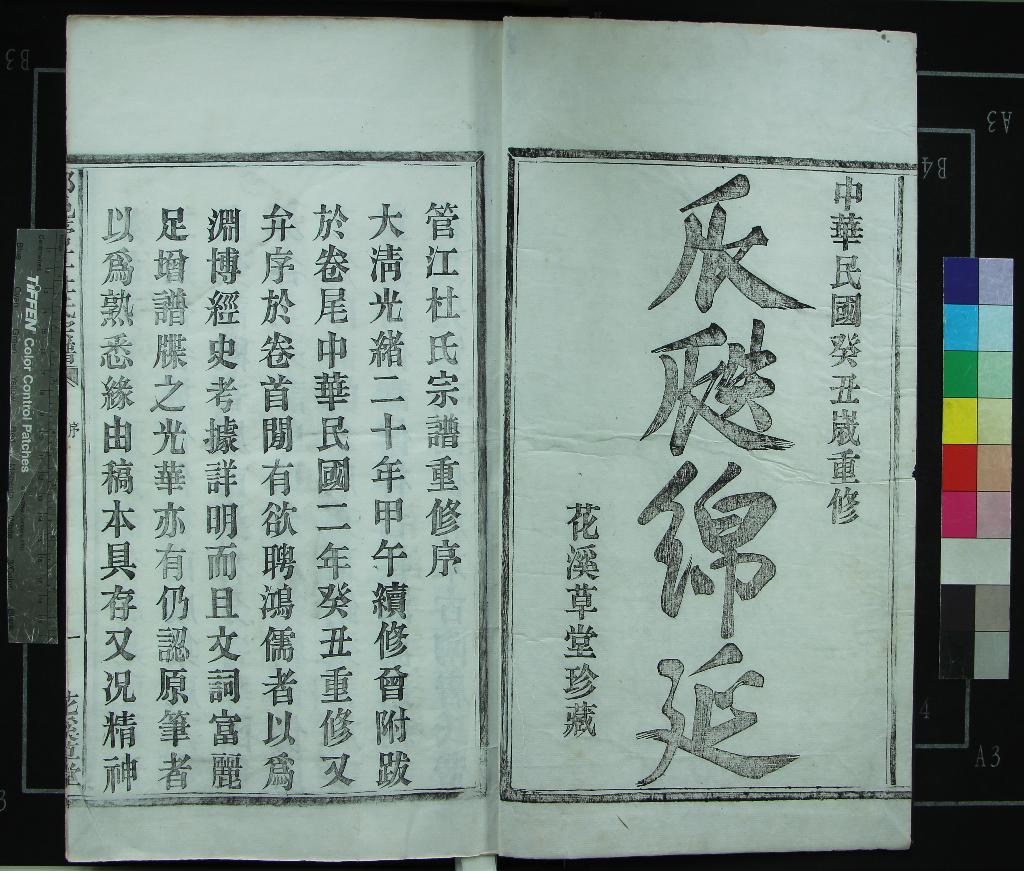 中華民國癸丑歲重修
瓜瓞綿延
花溪草堂珍藏
管江杜氏宗譜重修序
大清光緒二十年甲午續修曾附跋
於卷尾中華民國二年癸丑重修又
弁序於卷首聞有欲聘鴻儒者以爲
淵博經史考據詳明而且文詞富麗
足增譜牒之光華亦有仍認原筆者
以爲熟悉緣由稿本具存又况精神
序
一
花溪草堂
TIFFEN Color Control Patches
B3
A3
B4
A3
4
3